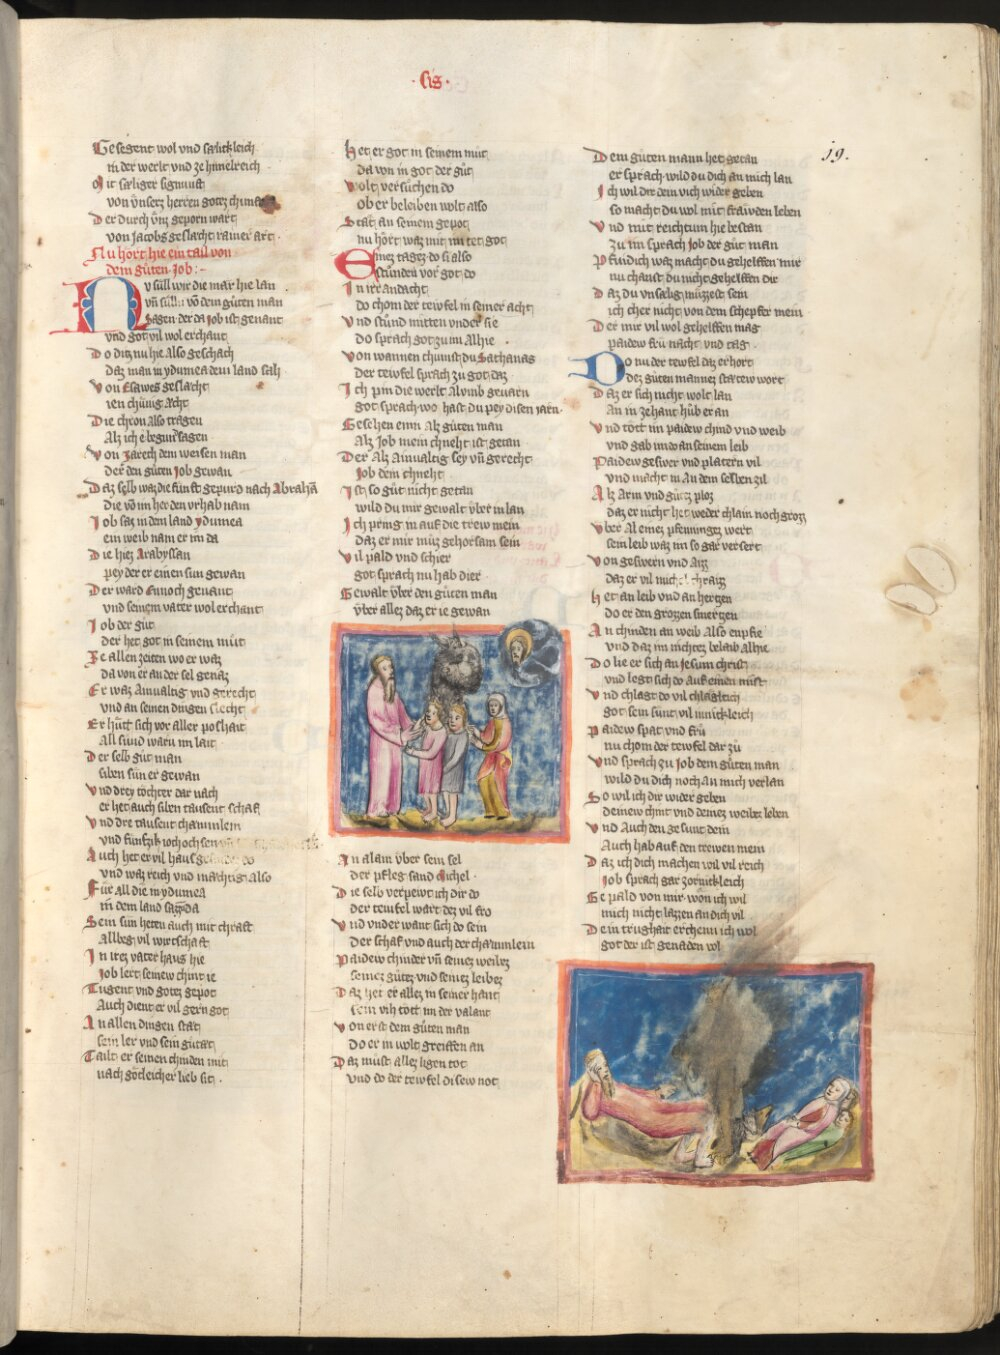 · Gis ·
19.
Gesegent wol vnd sälickleich
in der werlt vnd ze himelreich
Mit säliger sigmust
von vnserz herren gotez
Der durch vns geporn wart
von Jacobs geslächt rainer art ·
Nu hort hie ein tail von
dem güten Job :-
NV süll wir die mär hie lan
vñ süllñ võ dem güten man
Sagen der da Job ist genant
vnd got vil wol erchant
Do ditz nu hie also geschach
daz man in ydumea dem land sach
Von Esawes geslächt
ien chünig ächt
Die chron also trägen
Alz ich e begunt sagen
Von Zarech dem weisen man
der den güten Job gewan
Daz selb waz die fünft gepurd nach Abrahã
die võ im her den vrhab nam
Job saz in dem land ydumea
ein weib nam er im da
Die hiez Arabyssan
pey der er einen sun gewan
Der ward Ennoch genant
vnd seinem vater wol erchant
Job der güt
der het got in seinem müt
Ze allen zeiten wo er waz
da von er an der sel genaz
Er waz ainualtig vnd gerecht
vnd an seinen dingen slecht
Er hütt sich vor aller poshait
All sünd warn im lait
Der selb güt man
siben sün er gewan
Vnd drey tochter dar nach
er het auch siben tausent schaf
Vnd dre tausent chämmlein
vnd fünfzik ioch ochsen
Auch het er vil haus
vnd waz reich vnd mächtig also
Für all die in ydumea
in dem land sazz da
Sein sün heten auch mit chraft
Allbeg vil wirtschaft
In irez vater haus hie
Job lert seinew chint ie
Tugent vnd gotez gepot
Auch dient er vil gern got
An allen dingen stät
sein ler vnd sein gütät
Tailt er seinen chinden mit
nach götleicher lieb sit ·
Het er got in seinem müt
da von in got der güt
Wolt versüchen do
ob er beleiben wolt also
Stät an seinem gepot
nu hört waz mit im tet got
Einez tagez do si also
stünden vor got do
In irr andacht
do chom der tewfel in seiner acht
Vnd stünd mitten vnder sie
do sprach got zu im Alhie
Von wannen chümst du Sathanas
der tewfel sprach zu got daz
Ich pin die werlt al vmb gevarn
got sprach wo hast du pey disen jarn
Gesehen einn Alz güten man
Alz Job mein chneht ist getan
Der Alz Ainualtig sey vñ gerecht
Job dem chneht
Ist so güt nicht getan
wild du mir gewalt vber in lan
Ich pring in auf die trew mein
daz er mir müz gehorsam sein
Vil pald vnd schier
got sprach nu hab dier
Gewalt vber den güten man
vber allez daz er ie gewan
An alain vber sein sel
der pfleg sand Michel ·
Die selb verpewt ich dir do
der teufel wart dez vil fro
Vnd vnder want sich do sein
Der schaf vnd auch der chämmlein
Paidew chinder vñ seinez weibez
seinez gütez vnd seinez leibez
Daz het er allez in seiner hant
sein vih tött im der valant
Von erst dem güten man
do er in wolt greiffen an
Daz müst allez ligen tot
vnd do der tewfel disew not
Dem güten mann het getan
er sprach wild du dich an mich lan
Ich wil dir dein vich wider geben
so macht du wol mit fräwden leben
Vnd mit reichtum hie bestan
zu im sprach Job der güt man
Pfindich waz macht du gehelffen mir
nu chanst du nicht gehelffen dir
Daz du vnsälig müzzest sein
ich cher nicht von dem schepfer mein
Der mir vil wol gehelffen mag
paidew frü nacht vnd tag
Do nu der tewfel daz erhort
dez güten mannez stätew wort
Daz er sich nicht wolt lan
An in zehant hüb er an
Vnd tött im paidew chind vnd weib
vnd gab im do an seinem leib
Paidew geswer vnd platern vil
vnd macht in An dem selben zil
Alz Arm vnd gütez ploz
daz er nicht het weder chlain noch groz
Vber Al einez pfenningez wert
sein leib waz im so gar versert
Von geswern vnd Aiz
daz er vil michel chraiz
Het an leib vnd an hertzen
do er den grozzen smertzen
An chinden an weib Also enpfie
vnd daz im nichtez belaib Alhie
Do lie er sich an Jesum christ
vnd legt sich do Auf einen mist
Vnd chlagt do vil chlägleich
got sein sünt vil innickleich
Paidew spat vnd frü
nu chom der tewfel dar zü
Vnd sprach zu Job dem güten man
wild du dich noch An mich verlan
So wil ich dir wider geben
deinew chint vnd deinez weibez leben
Vnd Auch den gesunt dein
Auch hab auf den trewen mein
Daz ich dich machen wil vil reich
Job sprach gar zornickleich
Ge pald von mir wön ich wil
mich nicht lazzen an dich vil
Dein trughait erchenn ich wol
got der ist genaden vol